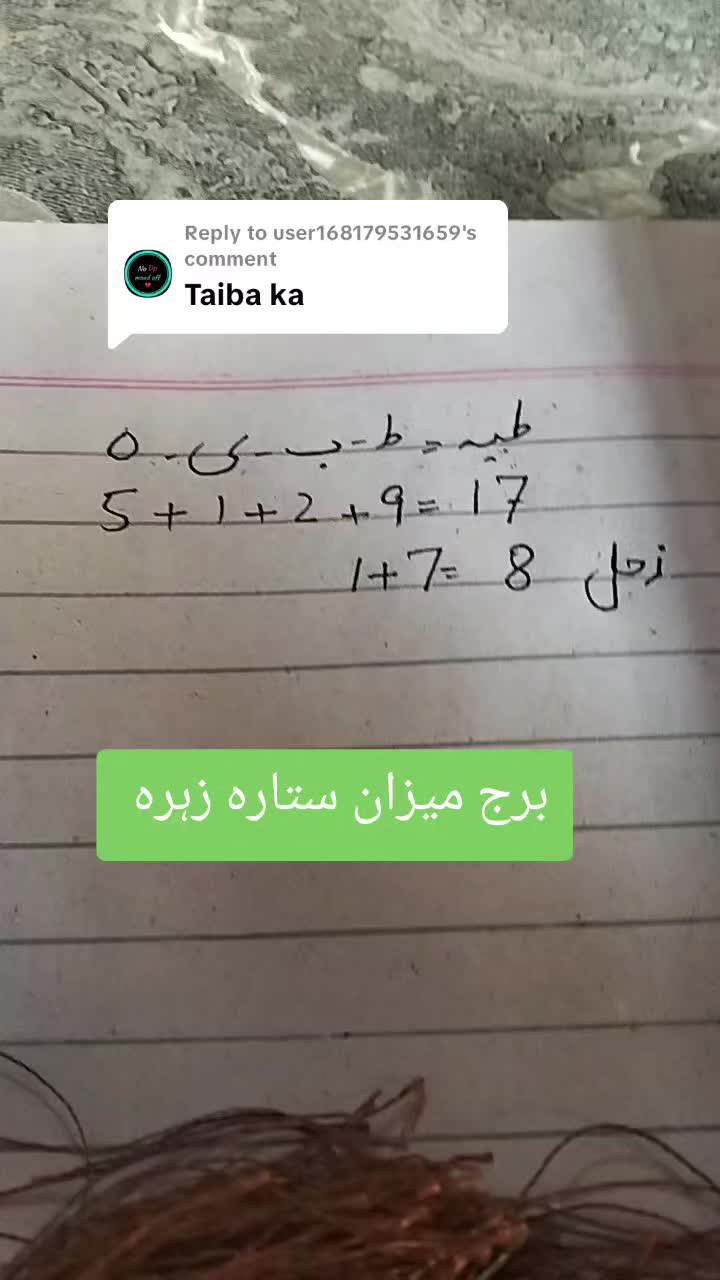 Reply to user168179531659's
comment
No Dp
mood off
Taiba ka
طیبہ = ط - ب - ی - ه
5 + 1 + 2 + 9 = 17
1+7= 8 زحل
برج میزان ستاره زہرہ